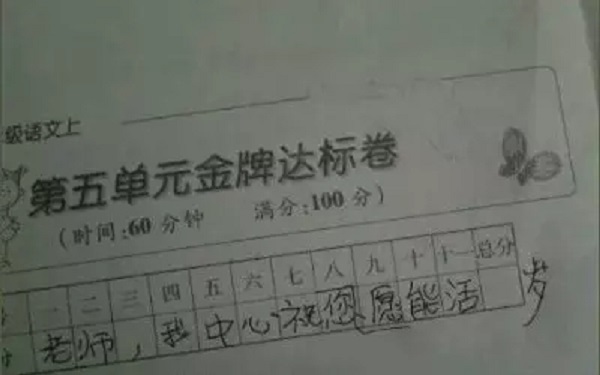 级语文上
第五单元金牌达标卷
(时间:60分钟 满分:100分)
一 二 三 四 五 六 七 八 九 十 十一 总分
老师,我中心祝您愿能活 岁